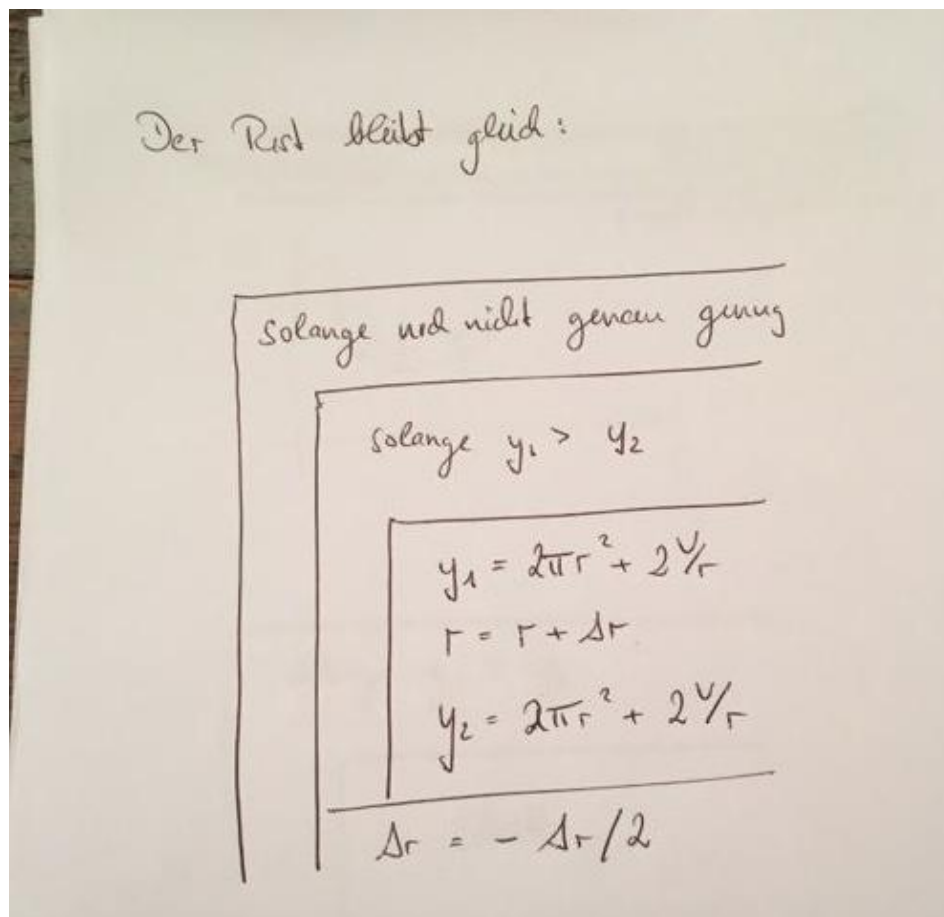 Der Rest bleibt gleich:
solange noch nicht genau genug
solange y₁ > y₂
y₁ = 2πr² + 2V/r
r = r + Δr
y₂ = 2πr² + 2V/r
Δr = - Δr/2